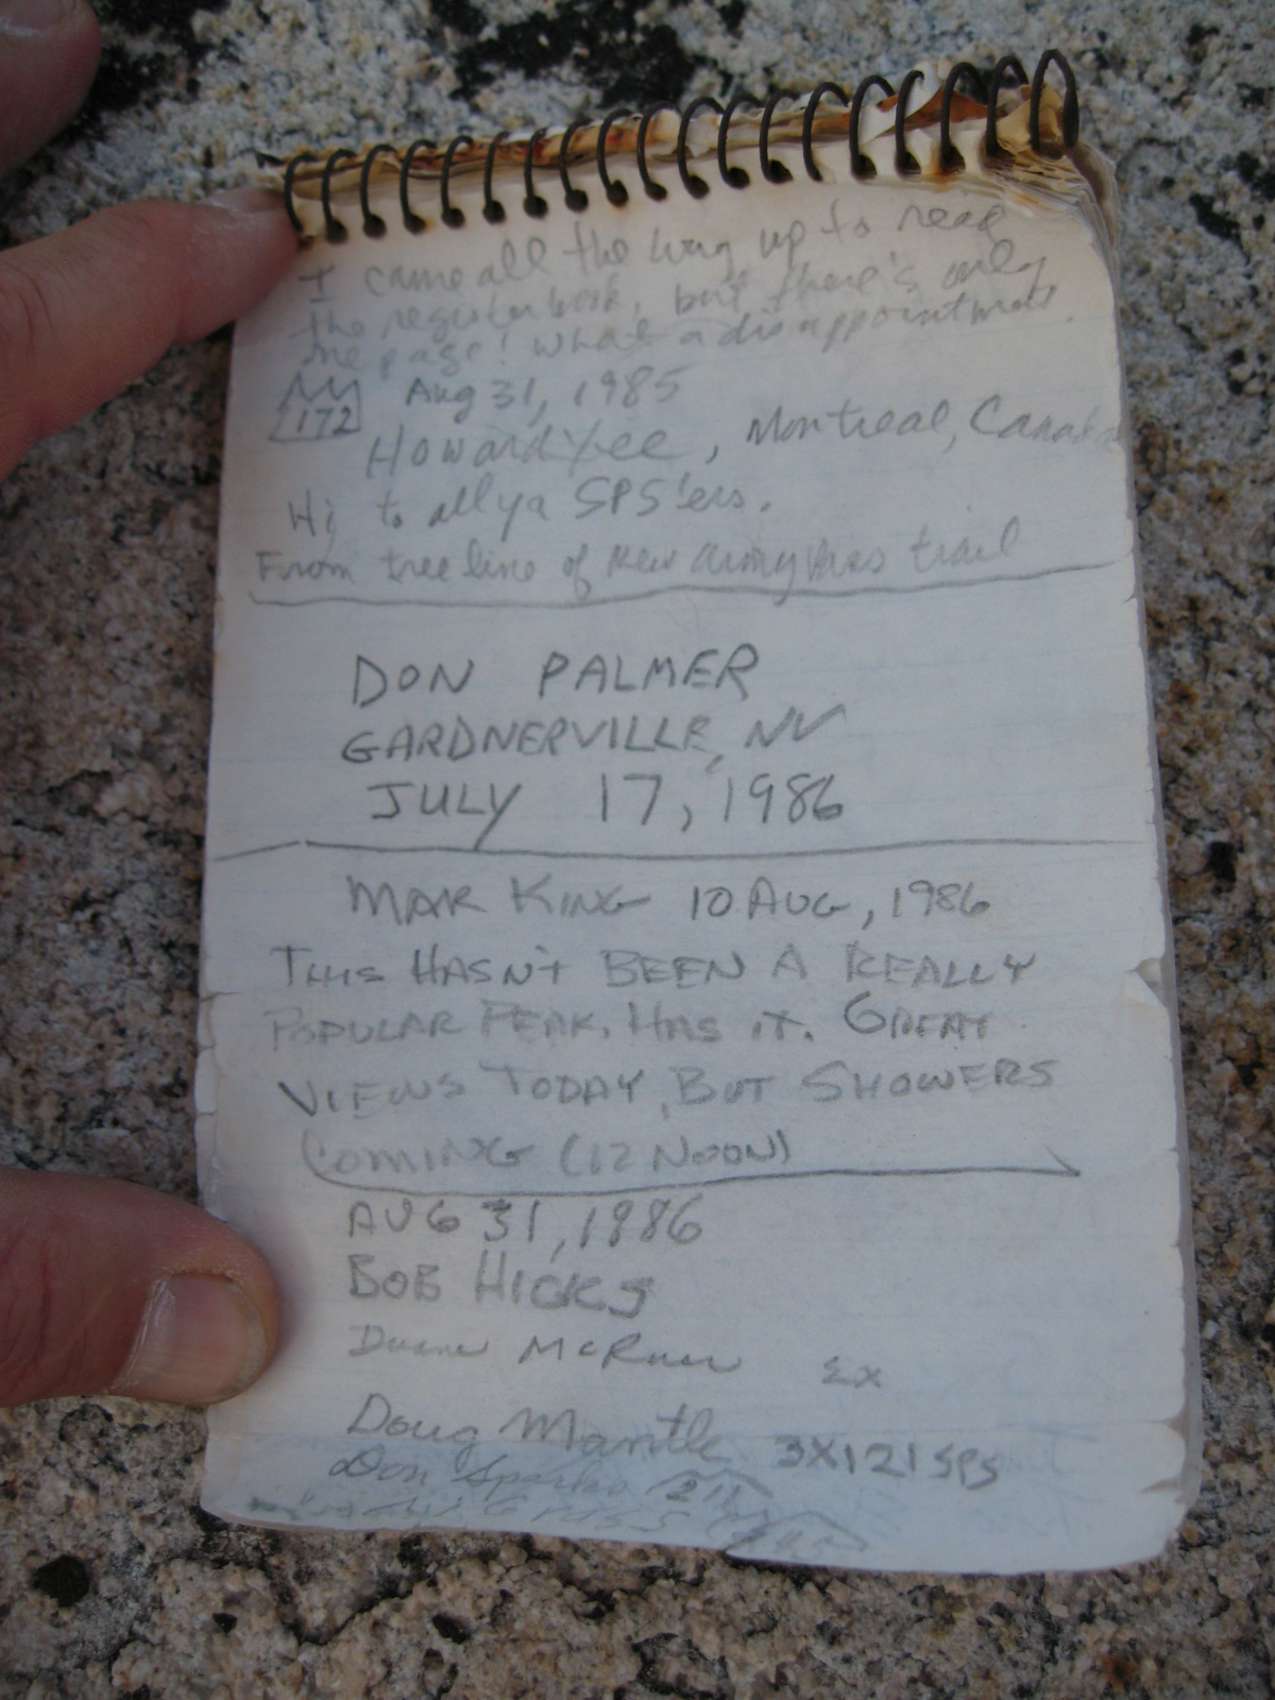 I came all the way up to read
the register book, but there's only
one page! What a disappointment.
172 Aug 31, 1985
Howard Yee, Montreal, Canada
Hi to all ya SPS'ers.
From tree line of New Army Pass trail
DON PALMER
GARDNERVILLE, NV
JULY 17, 1986
MAR KING 10 AUG, 1986
THIS HASN'T BEEN A REALLY
POPULAR PEAK, HAS IT. GREAT
VIEWS TODAY, BUT SHOWERS
COMING (12 NOON)
AUG 31, 1986
BOB HICKS
Duane McRuer Ex
Doug Mantle 3X121 SPS
Don Sparks 211